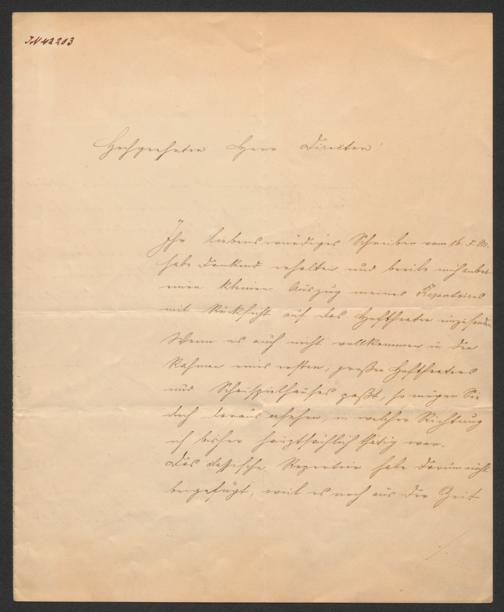 JN 42203
Hochgeehrter Herr Director!
Ihr liebenswürdiges Schreiben vom 16. d. M.
habe dankend erhalten und beeile mich anbei
einen kleinen Auszug meines Repertoires
mit Rücksicht auf das Hoftheater einzusenden.
Wenn es auch nicht vollkommen in den
Rahmen eines ersten, großen Hoftheaters
und Schauspielhauses paßt, so mögen Sie
doch daraus ersehen, in welcher Richtung
ich bisher hauptsächlich thätig war.
Das classische Repertoir habe darin nicht
beigefügt, weil es noch aus der Zeit